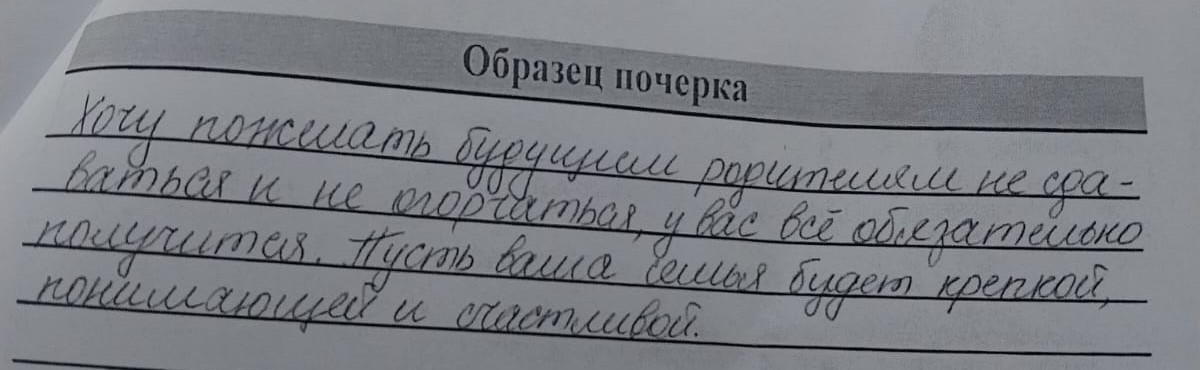 Образец почерка
Хочу пожелать будущим родителям не сда-
ваться и не огорчаться, у вас всё обязательно
получится. Пусть ваша семья будет крепкой,
понимающей и счастливой.